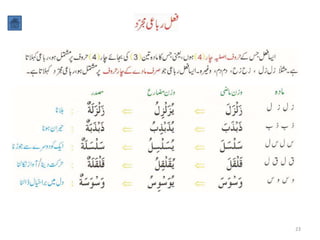 فعل رباعی مجرّد
ایسا فعل جس کے حروف اصلیہ چار (4) ہوں، یعنی جس کا مادہ تین (3) کی بجائے چار (4) حروف پر مشتمل ہو، رباعی کہلاتا
ہے۔ مثلاً زل زل ، زح زح ، دم دم ، وغیرہ۔ ایسا فعل رباعی جو صرف مادے کے چار حروف پر مشتمل ہو، رباعی مجرّد کہلاتا ہے۔
مادہ وزن ماضی وزن مضارع مصدر
ز ل ز ل زَلْزَلَ ⇐ یُزَلْزِلُ ⇐ زَلْزَلَةٌ : ہلانا
ذ ب ذ ب ذَبْذَبَ ⇐ یُذَبْذِبُ ⇐ ذَبْذَبَةٌ : حیران ہونا
س ل س ل سَلْسَلَ ⇐ یُسَلْسِلُ ⇐ سَلْسَلَةٌ : ایک کو دوسرے سے جوڑنا
ق ل ق ل قَلْقَلَ ⇐ یُقَلْقِلُ ⇐ قَلْقَلَةٌ : حرکت دینا / آواز نکالنا
و س و س وَسْوَسَ ⇐ یُوَسْوِسُ ⇐ وَسْوَسَةٌ : دل میں برا خیال ڈالنا
23